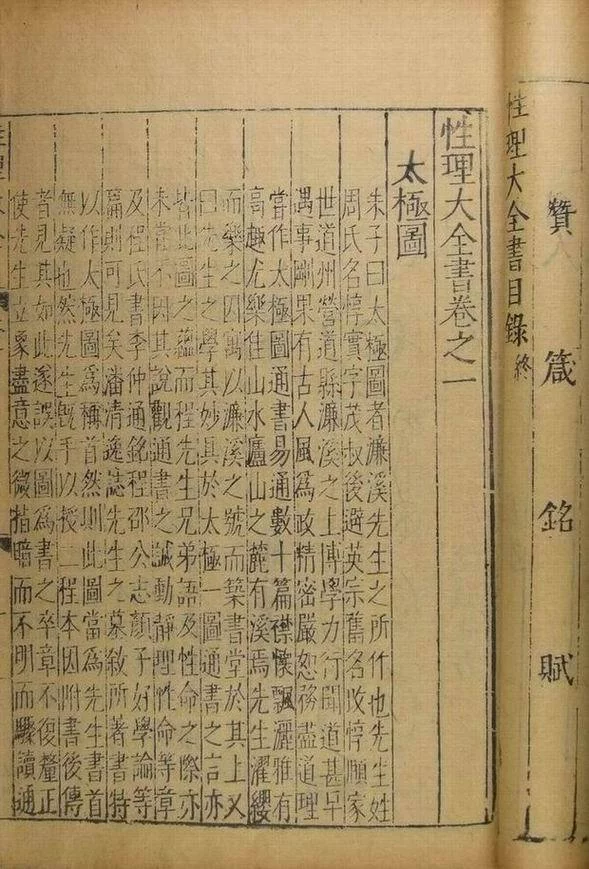 贊 箴 銘 賦
性理大全書目錄終
性理大全書卷之一
太極圖
朱子曰太極圖者濂溪先生之所作也先生姓
周氏名惇實字茂叔後避英宗舊名改惇頤家
世道州營道縣濂溪之上博學力行聞道甚早
遇事剛果有古人風爲政精密嚴恕務盡道理
甞作太極圖通書易通數十篇襟懷飄灑雅有
高趣尤樂佳山水廬山之麓有溪焉先生濯纓
而樂之因寓以濂溪之號而築書堂於其上又
曰先生之學其妙具於太極一圖通書之言亦
皆此圖之蘊而程先生兄弟語及性命之際亦
未甞不因其說觀通書之誠動靜理性命等章
及程氏書李仲通銘程邵公志顏子好學論等
篇則可見矣潘清逸誌先生之墓敘所著書特
以作太極圖爲稱首然則此圖當爲先生書首
無疑也然先生旣手以授二程本因附書後傳
者見其如此遂誤以圖爲書之卒章不復釐正
使先生立象盡意之微指暗而不明而驟讀通